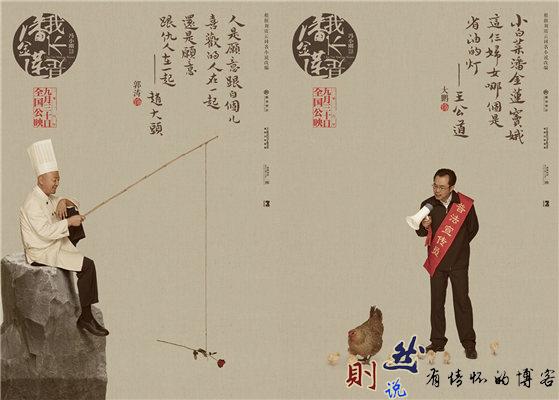 我不是潘金莲
九月三十日
全国公映
根据刘震云同名小说改编
人是願意跟自個儿
喜歡的人在一起
還是願意
跟仇人在一起
——趙大頭
郭涛 饰
我不是潘金莲
九月三十日
全国公映
根据刘震云同名小说改编
小白菜潘金蓮竇娥
這仨婦女哪個是
省油的灯
——王公道
大鹏 饰
普法宣传员
則然说
有情怀的博客